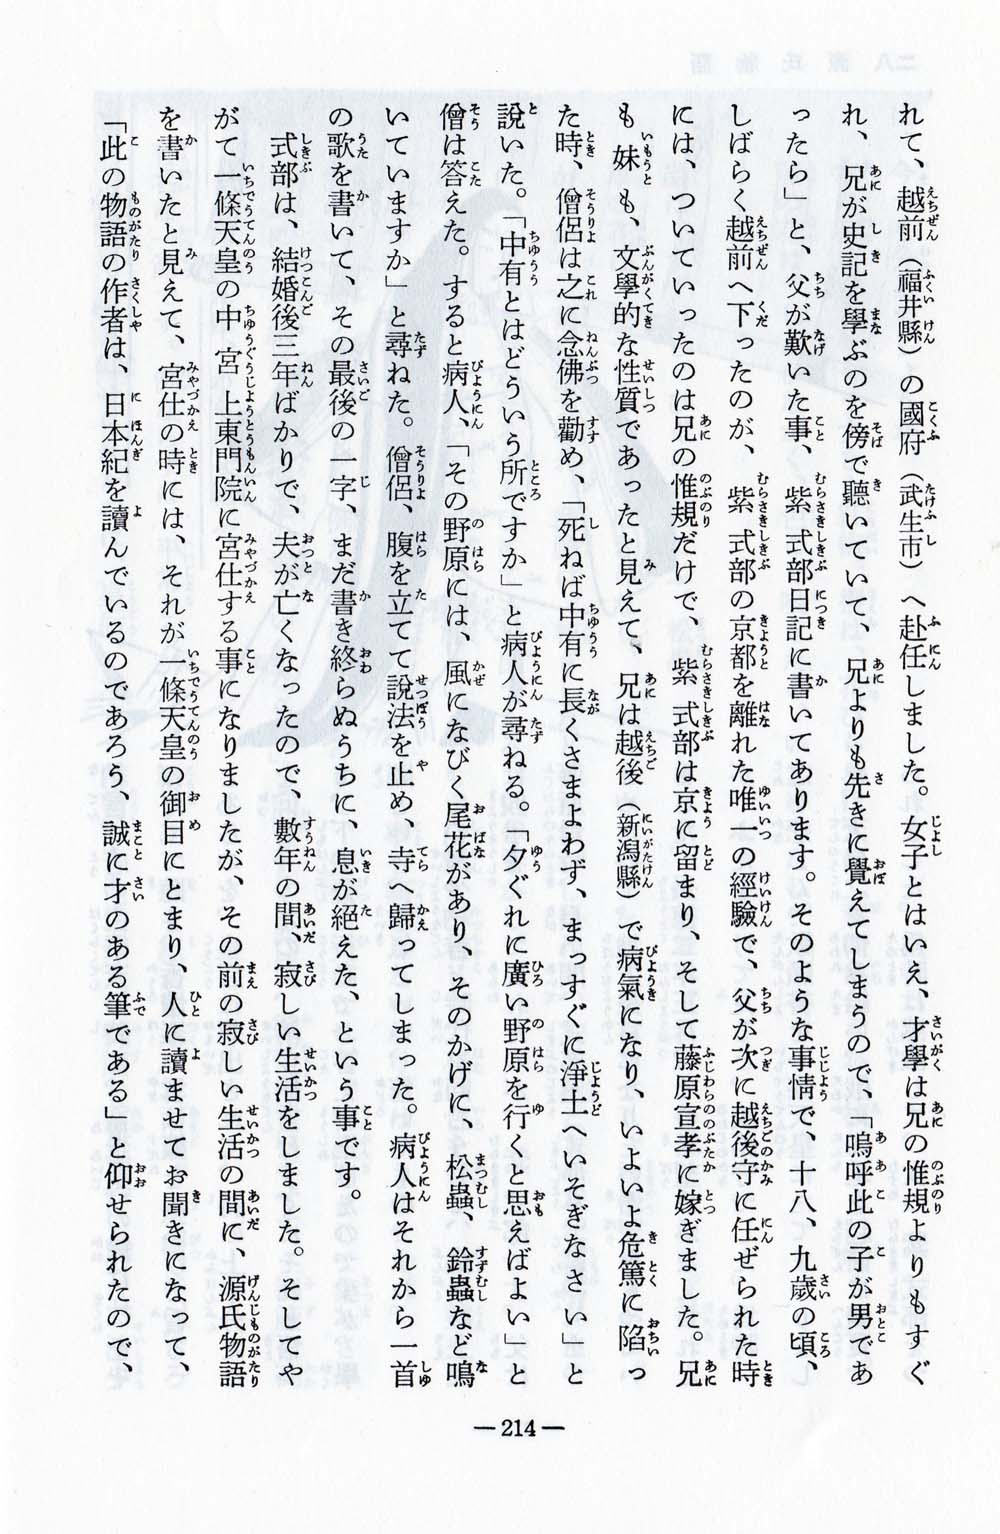 れて、越前（福井縣）の國府（武生市）へ赴任しました。女子とはいえ、才學は兄の惟規よりもすぐ
れ、兄が史記を學ぶのを傍で聽いていて、兄よりも先きに覺えてしまうので、「嗚呼此の子が男であ
ったら」と、父が歎いた事、紫式部日記に書いてあります。そのような事情で、十八、九歳の頃、
しばらく越前へ下ったのが、紫式部の京都を離れた唯一の經驗で、父が次に越後守に任ぜられた時
には、ついていったのは兄の惟規だけで、紫式部は京に留まり、そして藤原宣孝に嫁ぎました。兄
も妹も、文學的な性質であったと見えて、兄は越後（新潟縣）で病氣になり、いよいよ危篤に陷っ
た時、僧侶は之に念佛を勸め、「死ねば中有に長くさまよわず、まっすぐに淨土へいそぎなさい」と
說いた。「中有とはどういう所ですか」と病人が尋ねる。「夕ぐれに廣い野原を行くと思えばよい」と
僧は答えた。すると病人、「その野原には、風になびく尾花があり、そのかげに、松蟲、鈴蟲など鳴
いていますか」と尋ねた。僧侶、腹を立てて說法を止め、寺へ歸ってしまった。病人はそれから一首
の歌を書いて、その最後の一字、まだ書き終らぬうちに、息が絕えた、という事です。
式部は、結婚後三年ばかりで、夫が亡くなったので、數年の間、寂しい生活をしました。そしてや
がて一條天皇の中宮上東門院に宮仕する事になりましたが、その前の寂しい生活の間に、源氏物語
を書いたと見えて、宮仕の時には、それが一條天皇の御目にとまり、人に讀ませてお聞きになって、
「此の物語の作者は、日本紀を讀んでいるのであろう、誠に才のある筆である」と仰せられたので、
—214—